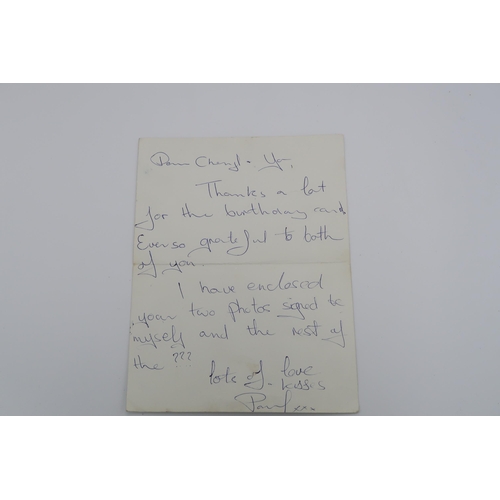 Dear Cheryl + Yan,
Thanks a lot
for the birthday card
Ever so grateful to both
of you
I have enclosed
your two photos signed to
myself and the rest of
the ???
lots of love
kisses
Paul xxx